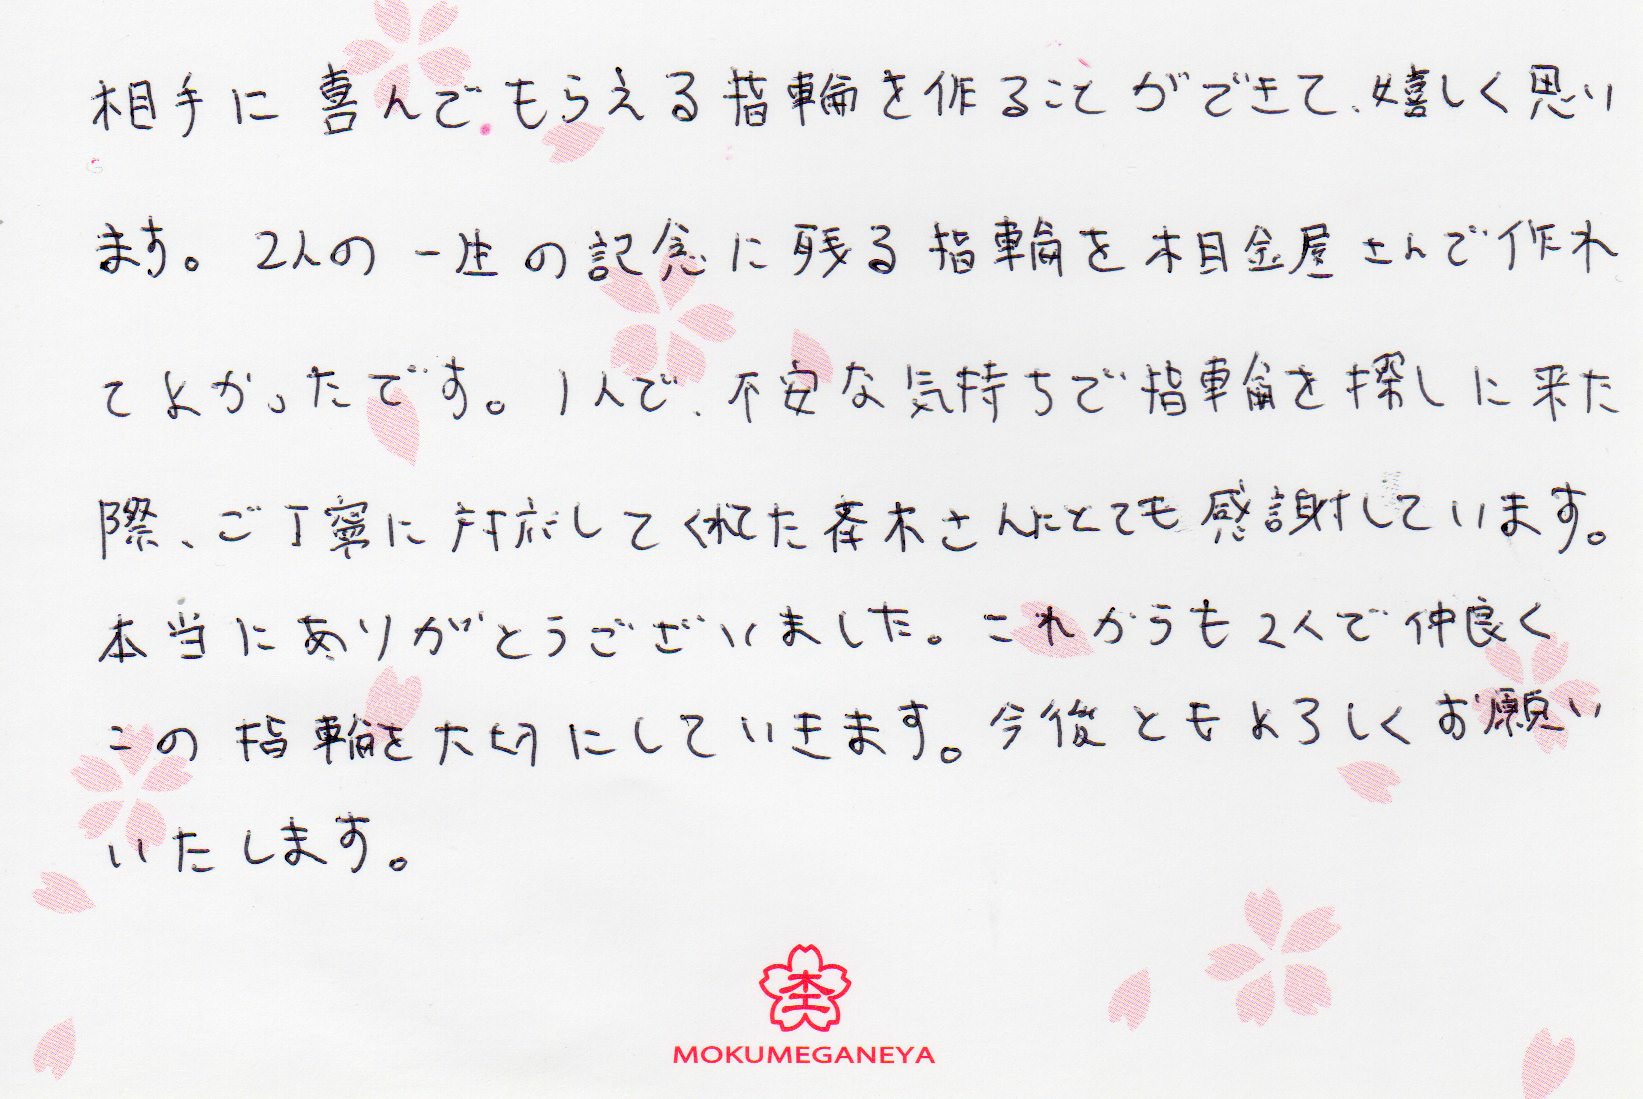 相手に喜んでもらえる指輪を作ることができて、嬉しく思い
ます。2人の一生の記念に残る指輪を木目金屋さんで作れ
てよかったです。1人で、不安な気持ちで指輪を探しに来た
際、ご丁寧に対応してくれた斉木さんにとても感謝しています。
本当にありがとうございました。これからも2人で仲良く
この指輪を大切にしていきます。今後ともよろしくお願い
いたします。
MOKUMEGANEYA